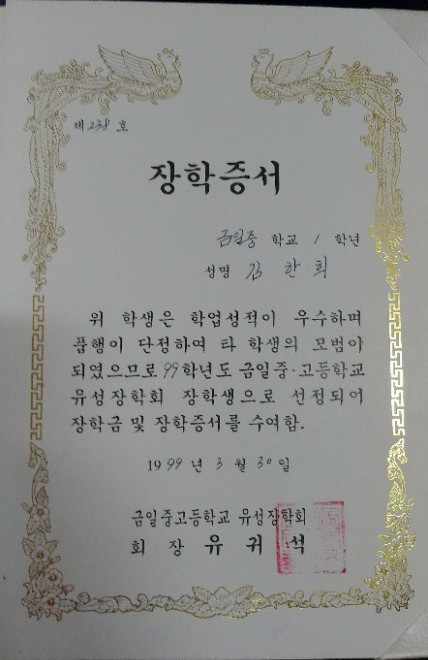 제238호
장학증서
금일중 학교 1 학년
성명 김한희
위 학생은 학업성적이 우수하며
품행이 단정하여 타 학생의 모범이
되였으므로 99학년도 금일중·고등학교
유성장학회 장학생으로 선정되어
장학금 및 장학증서를 수여함.
1999년 3월 30일
금일중고등학교 유성장학회
회 장 유 귀 석